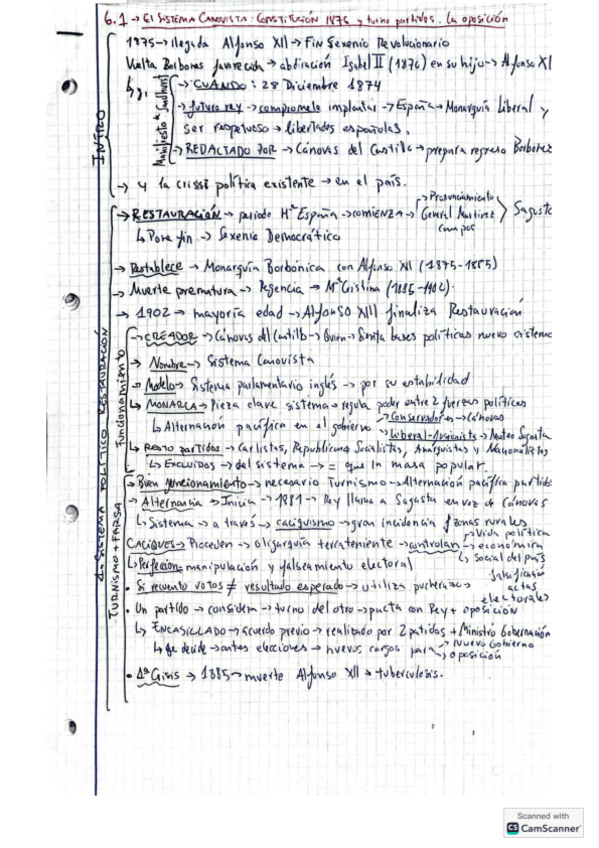 6.1 → El SISTEMA CANOVISTA: CONSTITUCIÓN 1876 y turno partidos. La oposición
INTRO
1875 → llegada Alfonso XII → FIN Sexenio Revolucionario
Vuelta Borbones favorecida → abdicación Isabel II (1870) en su hijo → Alfonso XI
Manifiesto
→ CUANDO: 28 Diciembre 1874
→ futuro rey → compromete implantar → España → Monarquía Liberal y
ser respetuoso → libertades españolas.
→ REDACTADO POR → Cánovas del Castillo → prepara regreso Borbones
→ y la crisis política existente → en el país.
1. SISTEMA POLÍTICO RESTAURACIÓN
→ RESTAURACIÓN → periodo Hª España → COMIENZA → Pronunciamiento General Martínez Campos Sagasta
↳ Pone fin → Sexenio Democrático
→ Restablece → Monarquía Borbónica con Alfonso XII (1875-1885)
→ Muerte prematura → Regencia → Mª Cristina (1885-1902).
→ 1902 → mayoría edad → Alfonso XIII finaliza Restauración
Funcionamiento
→ CREADOR → Cánovas del Castillo → Quien → Sienta bases políticas nuevo sistema
→ Nombre → Sistema Canovista
→ Modelo → Sistema parlamentario inglés → por su estabilidad
↳ MONARCA → Pieza clave sistema → regula poder entre 2 fuerzas políticas
↳ Alternación pacífica en el gobierno → Conservadores → Cánovas
→ Liberal-fusionista → Mateo Sagasta
↳ RESTO partidos → Carlistas, Republicanos, Socialistas, Anarquistas y Nacionalistas
↳ EXCLUIDOS → del sistema → = que la masa popular.
TURNISMO + FARSA
→ Buen funcionamiento → necesario Turnismo → Alternación pacífica partidos
→ Alternancia → Inicia → 1881 → Rey llama a Sagasta en vez de Cánovas
↳ Sistema → a través → caciquismo → gran incidencia zonas rurales
CACIQUES → Proceden → oligarquía terrateniente → controlan → Vida política
→ económica
↳ social del país
↳ Perfección = manipulación y falseamiento electoral
• Si recuento votos ≠ resultado esperado → utiliza pucherazo → falsificación
actas
electorales
• Un partido → considera → turno del otro → pacta con Rey + oposición
↳ ENCASILLADO → acuerdo previo → realizado por 2 partidos + Ministro Gobernación
↳ Se decide → antes elecciones → nuevos cargos para → Nuevo Gobierno
→ oposición
• 1ª Crisis → 1885 → muerte Alfonso XII → tuberculosis.
Scanned with
CS CamScanner